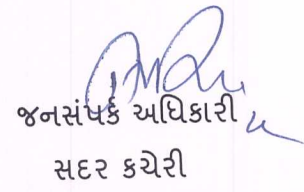 જનસંપર્ક અધિકારી
સદર કચેરી